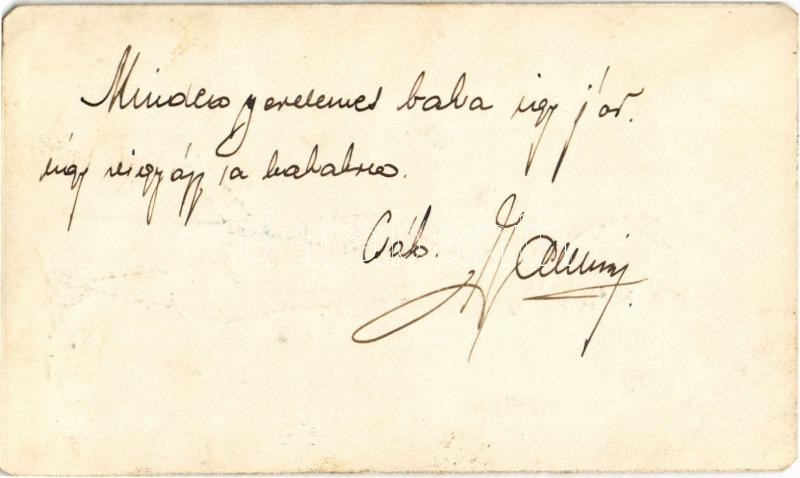 Minden szerelmes baka így jár.
úgy vigyázz a babakra.
Csók.